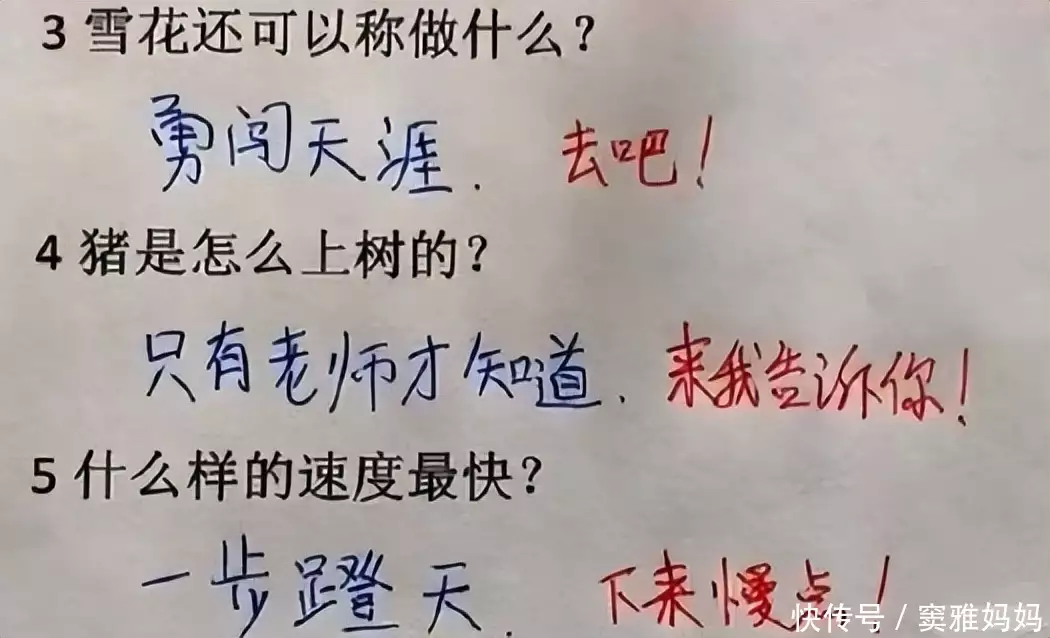 3 雪花还可以称做什么？
勇闯天涯. 去吧！
4 猪是怎么上树的？
只有老师才知道. 来我告诉你！
5 什么样的速度最快？
一步蹬天. 下来慢点！
快传号 / 窦雅妈妈